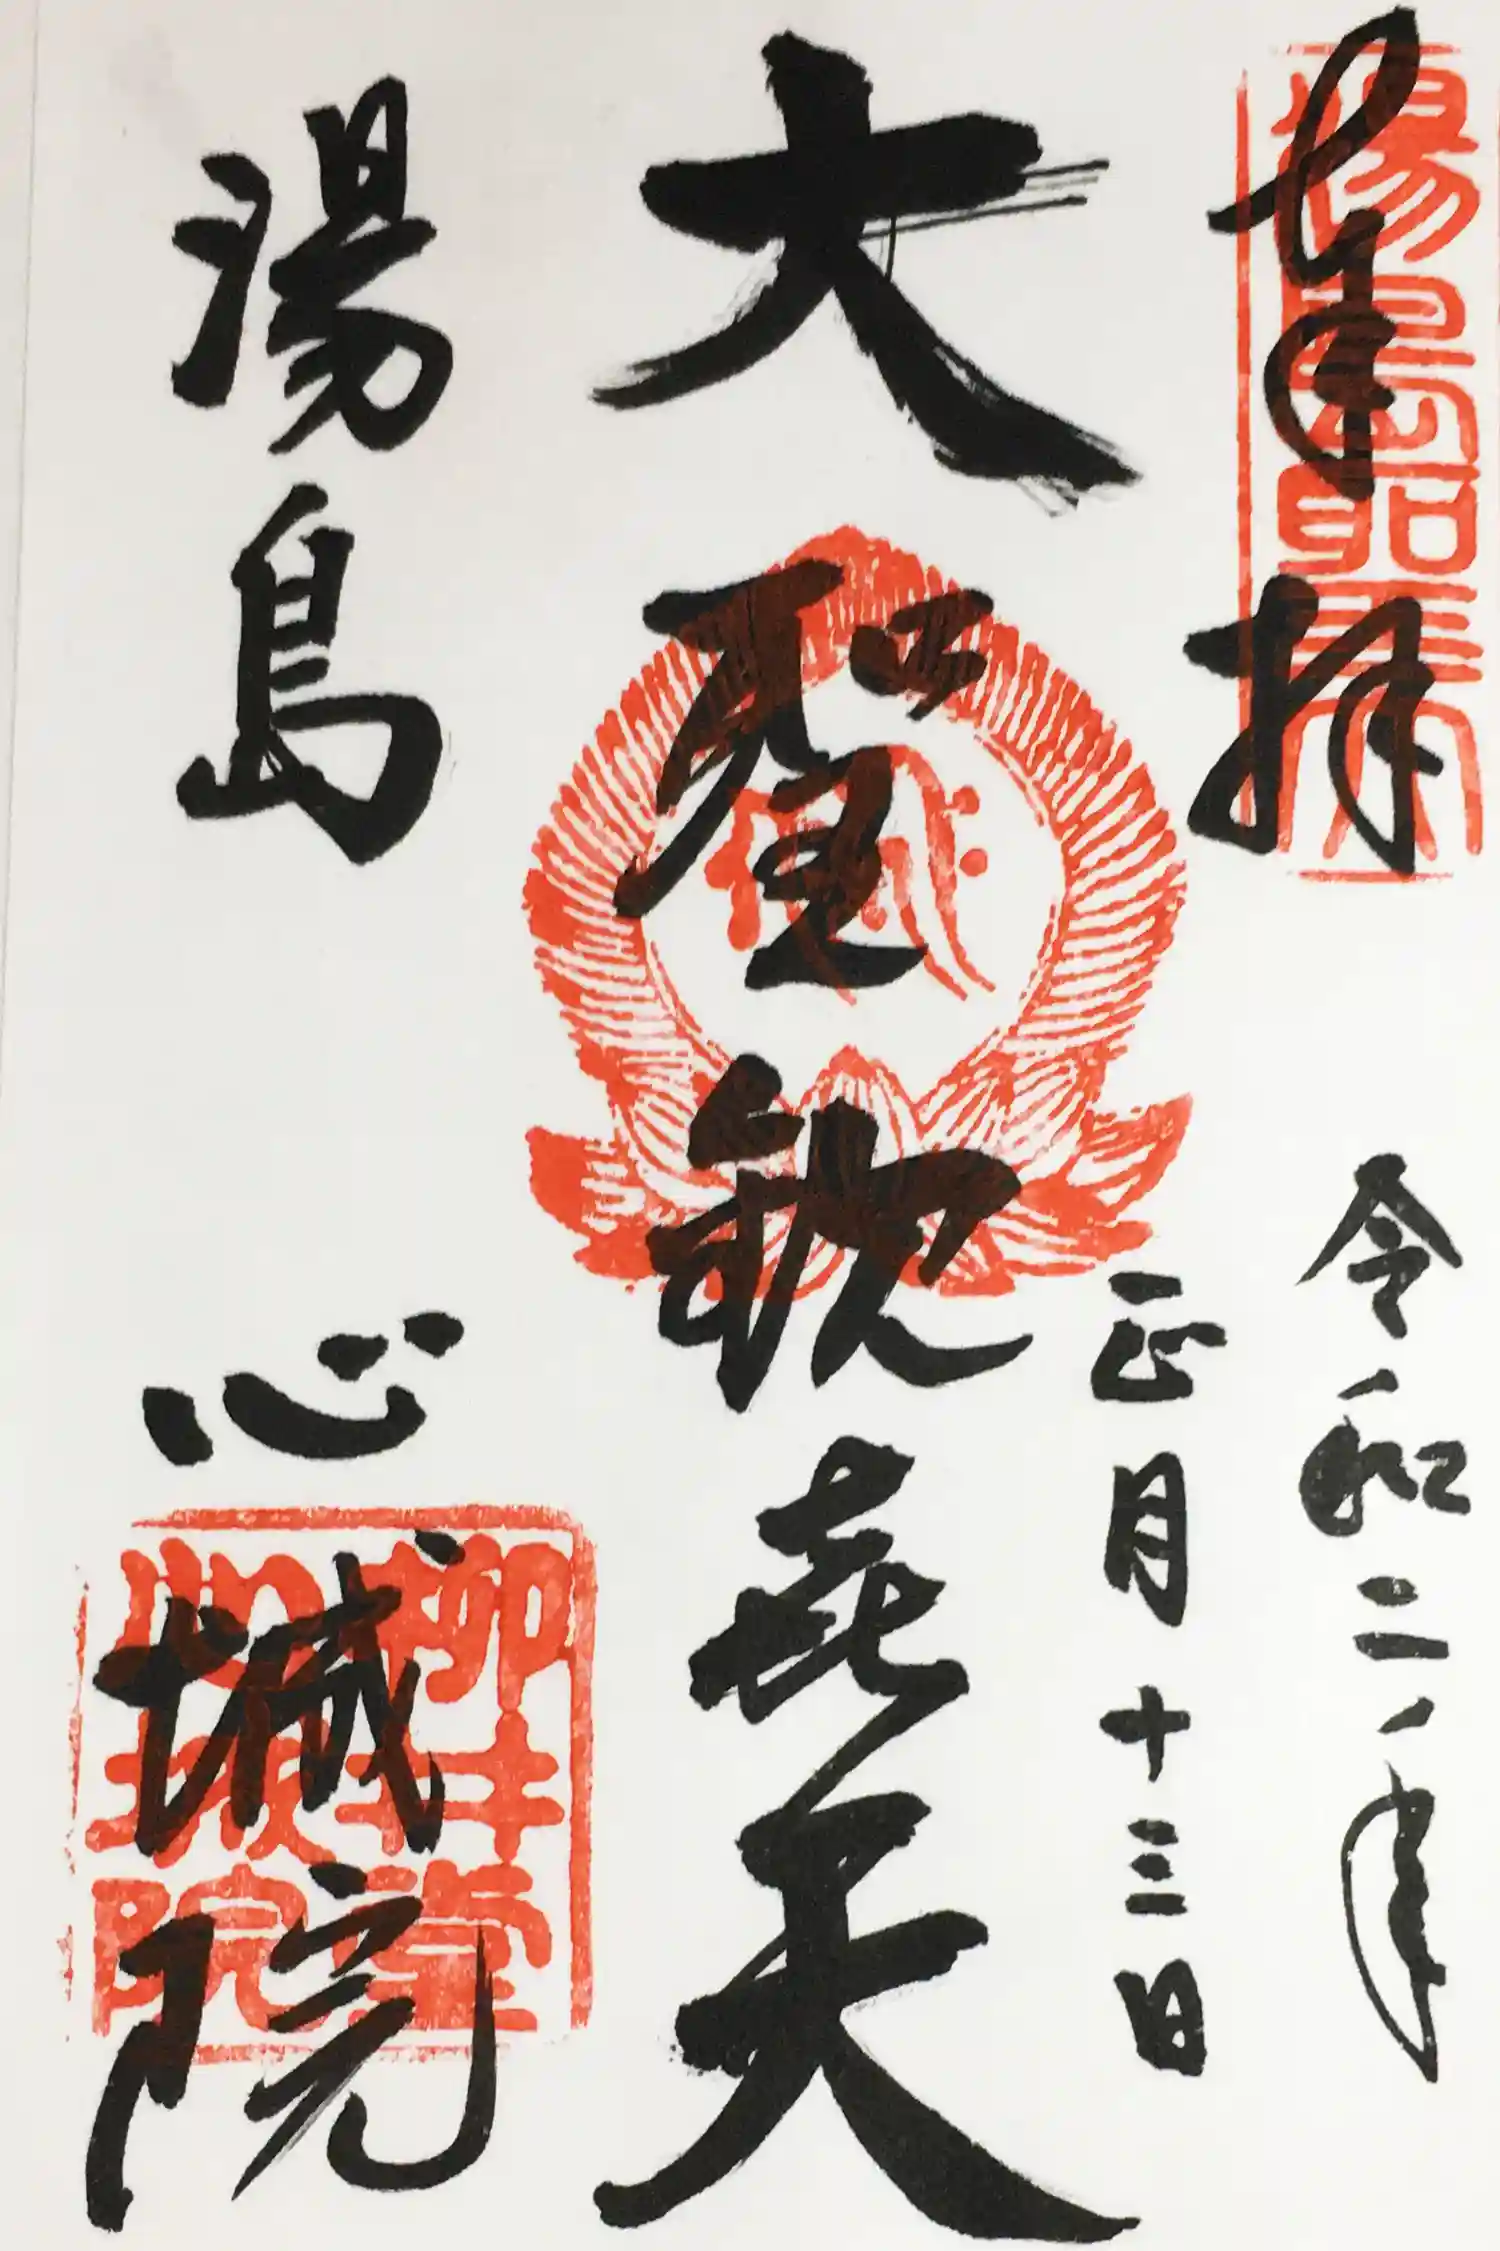 奉拝
令和二年
正月十三日
大聖歓喜天
湯島
心城院
柳井堂
心城院